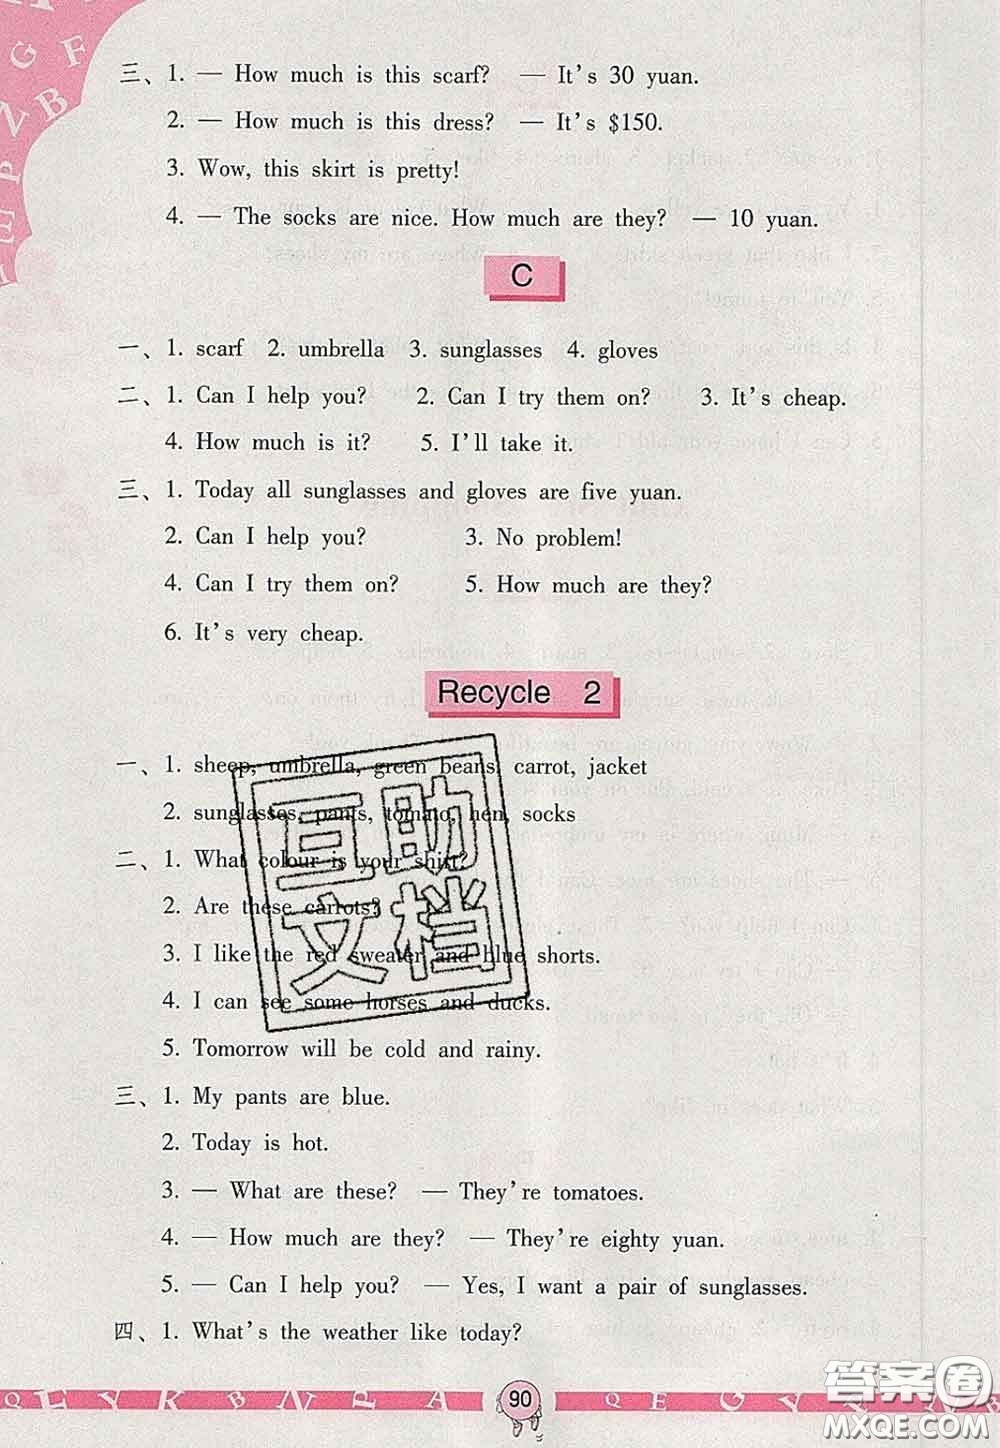 三、1. — How much is this scarf? — It's 30 yuan.
2. — How much is this dress? — It's $150.
3. Wow, this skirt is pretty!
4. — The socks are nice. How much are they? — 10 yuan.
C
一、1. scarf 2. umbrella 3. sunglasses 4. gloves
二、1. Can I help you? 2. Can I try them on? 3. It's cheap.
4. How much is it? 5. I'll take it.
三、1. Today all sunglasses and gloves are five yuan.
2. Can I help you? 3. No problem!
4. Can I try them on? 5. How much are they?
6. It's very cheap.
Recycle 2
一、1. sheep, umbrella, green beans, carrot, jacket
2. sunglasses, pants, tomato, hen, socks
二、1. What colour is your shirt?
2. Are these carrots?
3. I like the red sweater and blue shorts.
4. I can see some horses and ducks.
5. Tomorrow will be cold and rainy.
互助
文档
三、1. My pants are blue.
2. Today is hot.
3. — What are these? — They're tomatoes.
4. — How much are they? — They're eighty yuan.
5. — Can I help you? — Yes, I want a pair of sunglasses.
四、1. What's the weather like today?
90
答案圈
MXQE.COM